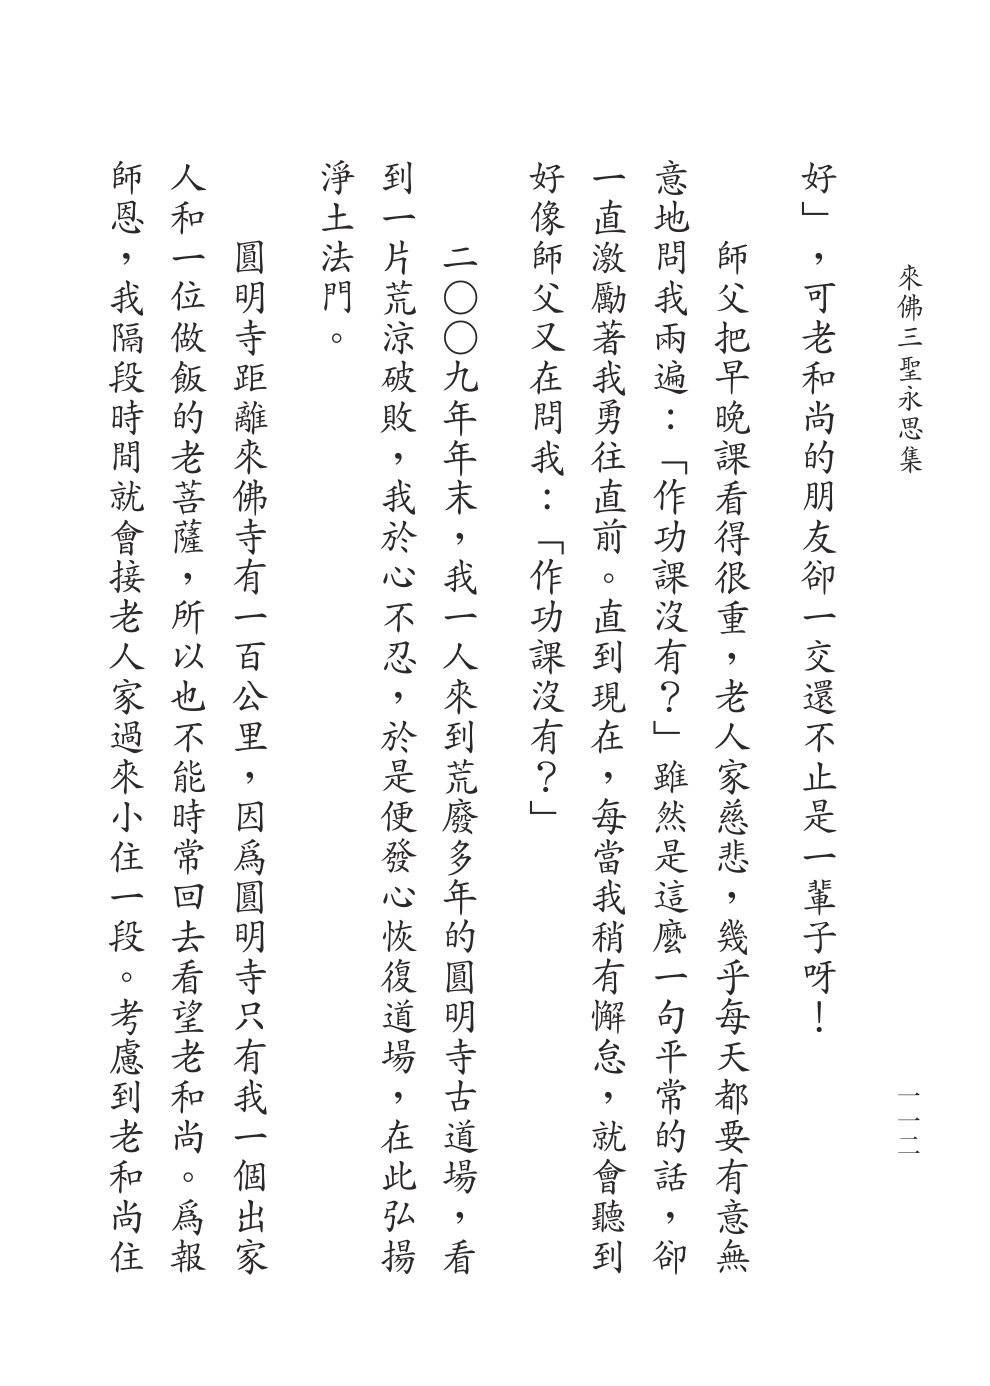 來佛三聖永思集
一一二
好」，可老和尚的朋友卻一交還不止是一輩子呀！
師父把早晚課看得很重，老人家慈悲，幾乎每天都要有意無
意地問我兩遍：「作功課沒有？」雖然是這麼一句平常的話，卻
一直激勵著我勇往直前。直到現在，每當我稍有懈怠，就會聽到
好像師父又在問我：「作功課沒有？」
二〇〇九年年末，我一人來到荒廢多年的圓明寺古道場，看
到一片荒涼破敗，我於心不忍，於是便發心恢復道場，在此弘揚
淨土法門。
圓明寺距離來佛寺有一百公里，因爲圓明寺只有我一個出家
人和一位做飯的老菩薩，所以也不能時常回去看望老和尚。爲報
師恩，我隔段時間就會接老人家過來小住一段。考慮到老和尚住